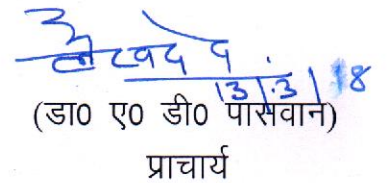 13/3/18
(डा0 ए0 डी0 पासवान)
प्राचार्य